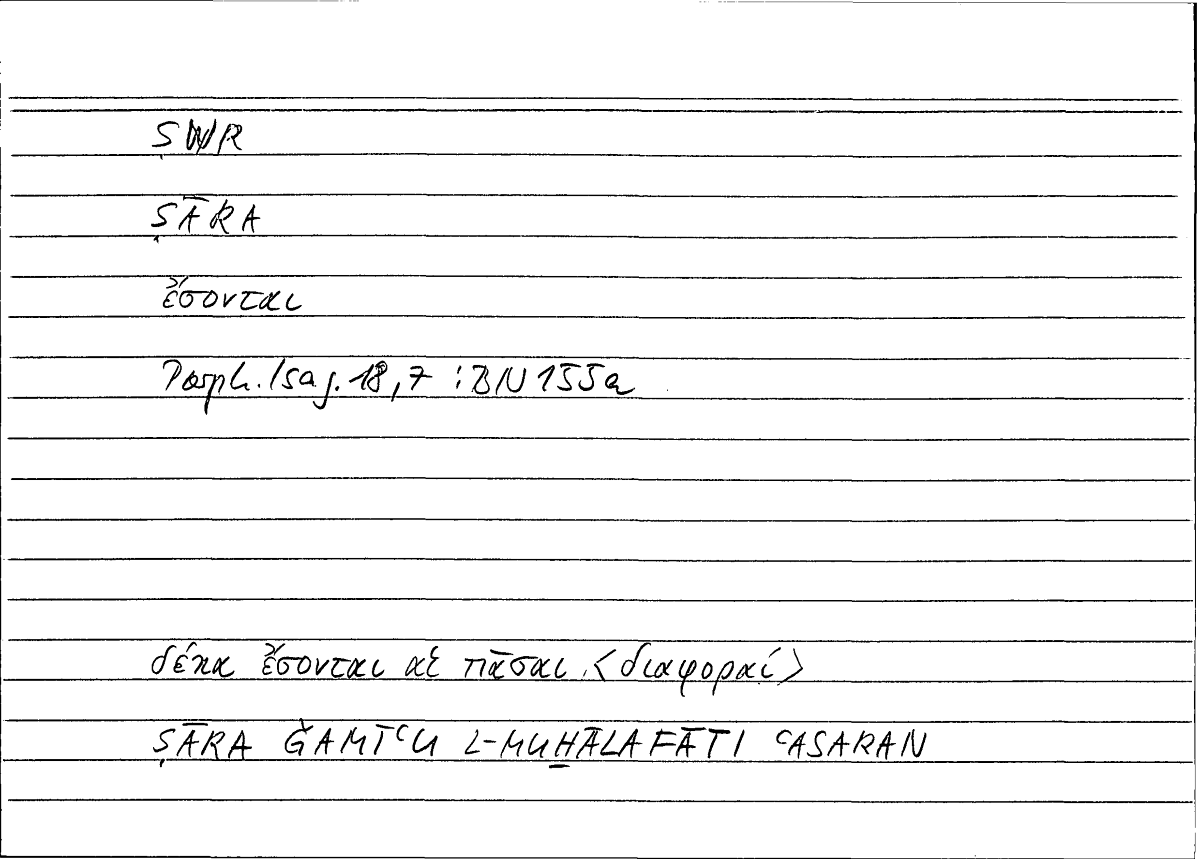 ṢWR
ṢĀRA
ἔσονται
Porph. Isag. 18,7 : BN 155a
δέκα ἔσονται αἱ πᾶσαι <διαφοραί>
ṢĀRA ǦAMĪʿU L-MUḪĀLAFĀTI ʿASARAN